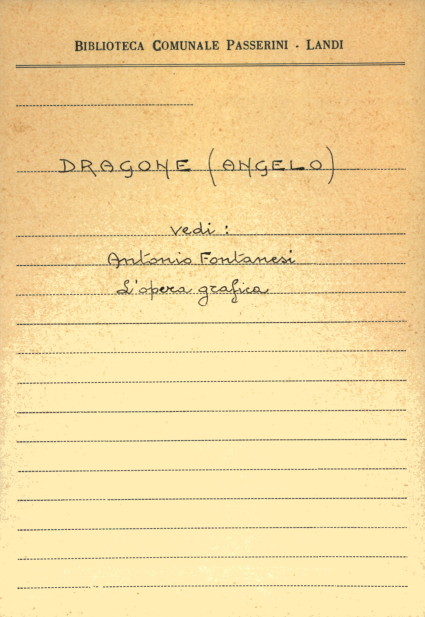 BIBLIOTECA COMUNALE PASSERINI - LANDI
DRAGONE (ANGELO)
vedi :
Antonio Fontanesi
L'opera grafica